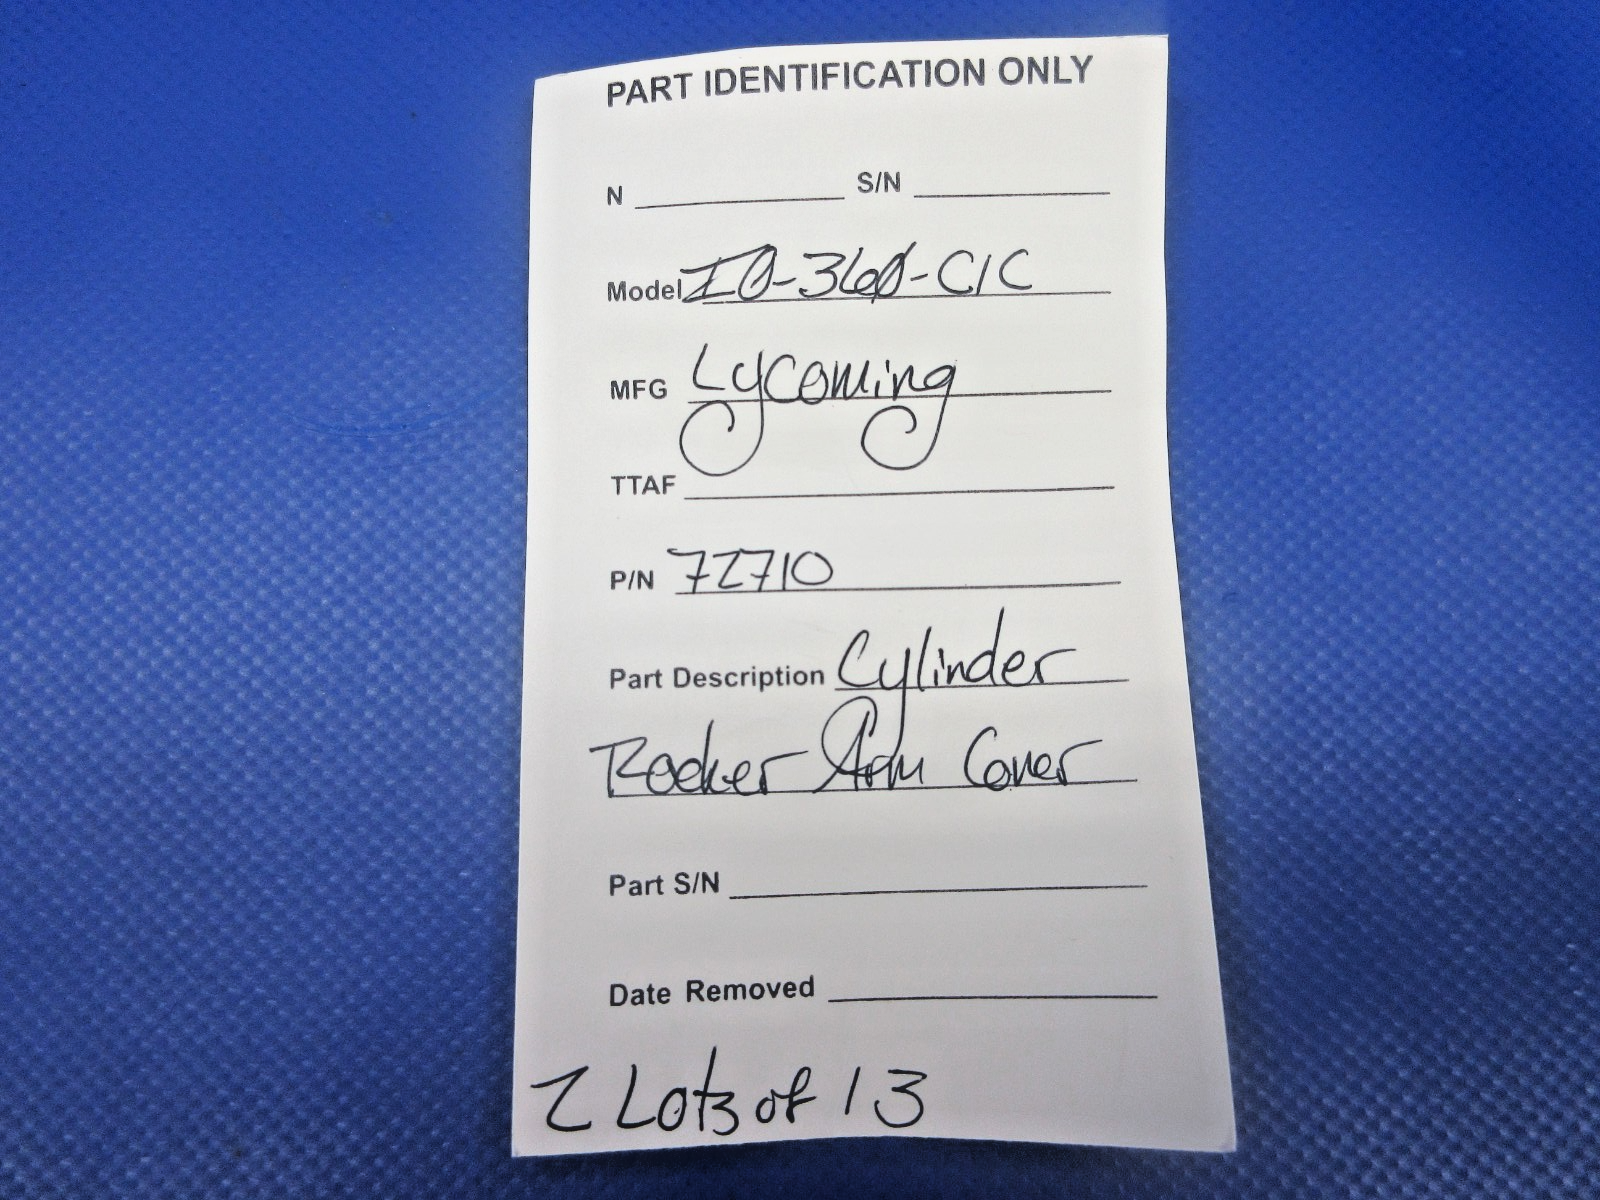 PART IDENTIFICATION ONLY
N S/N
Model IO-360-C1C
MFG Lycoming
TTAF
P/N 72710
Part Description Cylinder
Rocker Arm Cover
Part S/N
Date Removed
2 Lots of 13